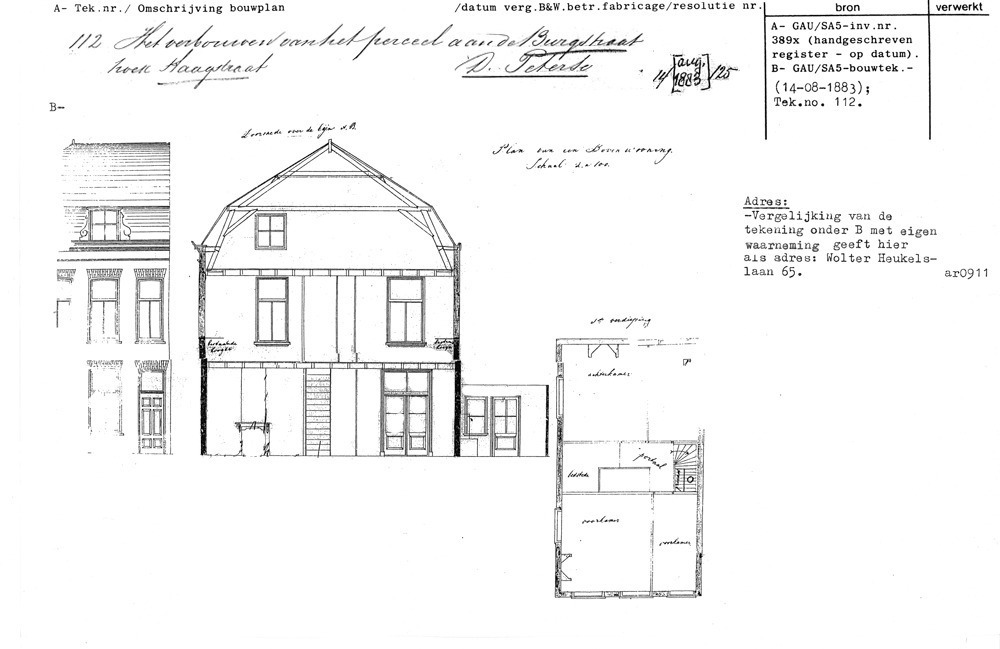 A- Tek.nr./ Omschrijving bouwplan /datum verg.B&W.betr.fabricage/resolutie nr. bron verwerkt
112 Het verbouwen van het perceel aan de Burgstraat
hoek Haagstraat D. Peterse 14 [aug. 1883] /25
A- GAU/SA5-inv.nr.
389x (handgeschreven
register - op datum).
B- GAU/SA5-bouwtek.-
(14-08-1883);
Tek.no. 112.
B-
Doorsnede over de lijn A.B.
Plan van een Bovenwooning.
Schaal 1 a 100.
Adres:
-Vergelijking van de
tekening onder B met eigen
waarneming geeft hier
als adres: Wolter Heukels-
laan 65. ar0911
1e verdieping
bestaande
hoogte
achterkamer
portaal
bedstede
voorkamer
voorkamer